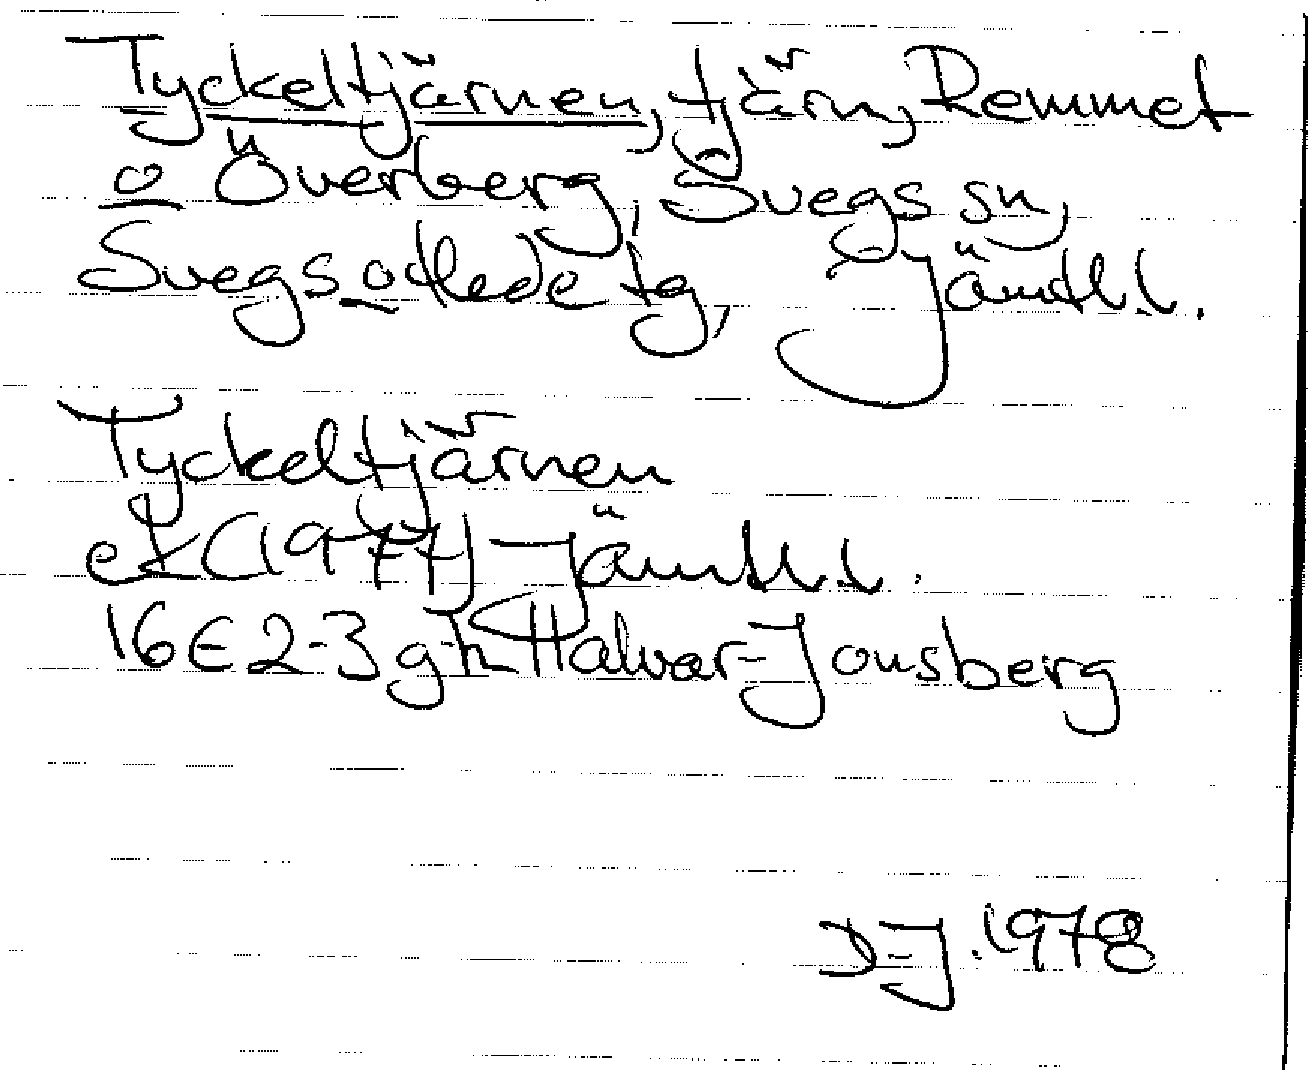 Tyckeltjärnen, tjärn, Remmet
o Överberg, Svegs sn,
Svegs o Hede tg, Jämtl.l.
Tyckeltjärnen
ek (1977) Jämtl.l.
16E2-3 g-h Halvar-Jonsberg
D-J. 1978